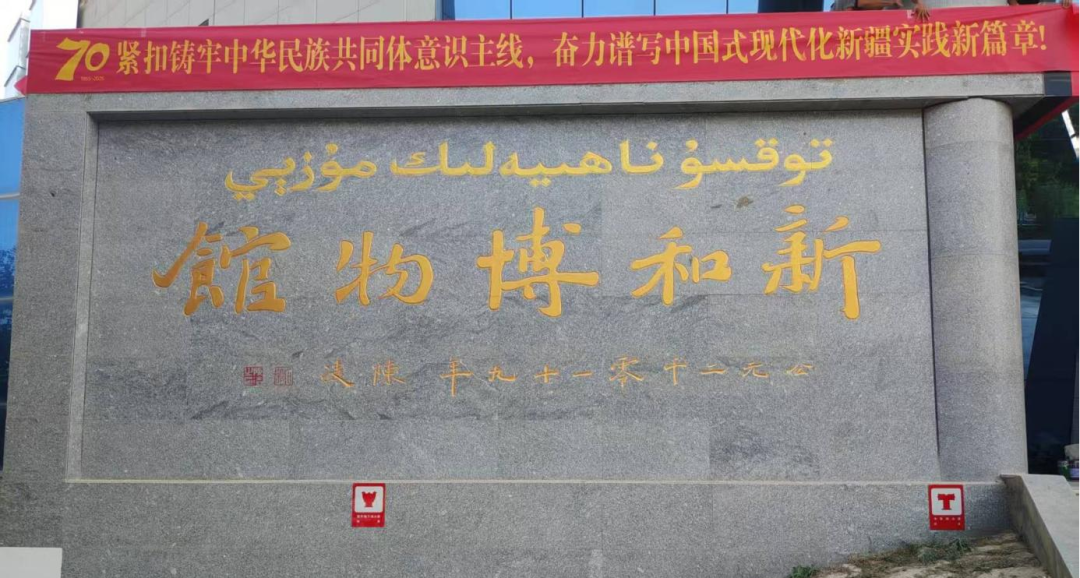 70 紧扣铸牢中华民族共同体意识主线，奋力谱写中国式现代化新疆实践新篇章!
توقسۇ ناھىيەلىك مۇزېي
新和博物館
公元二千零一十九年 陳凌